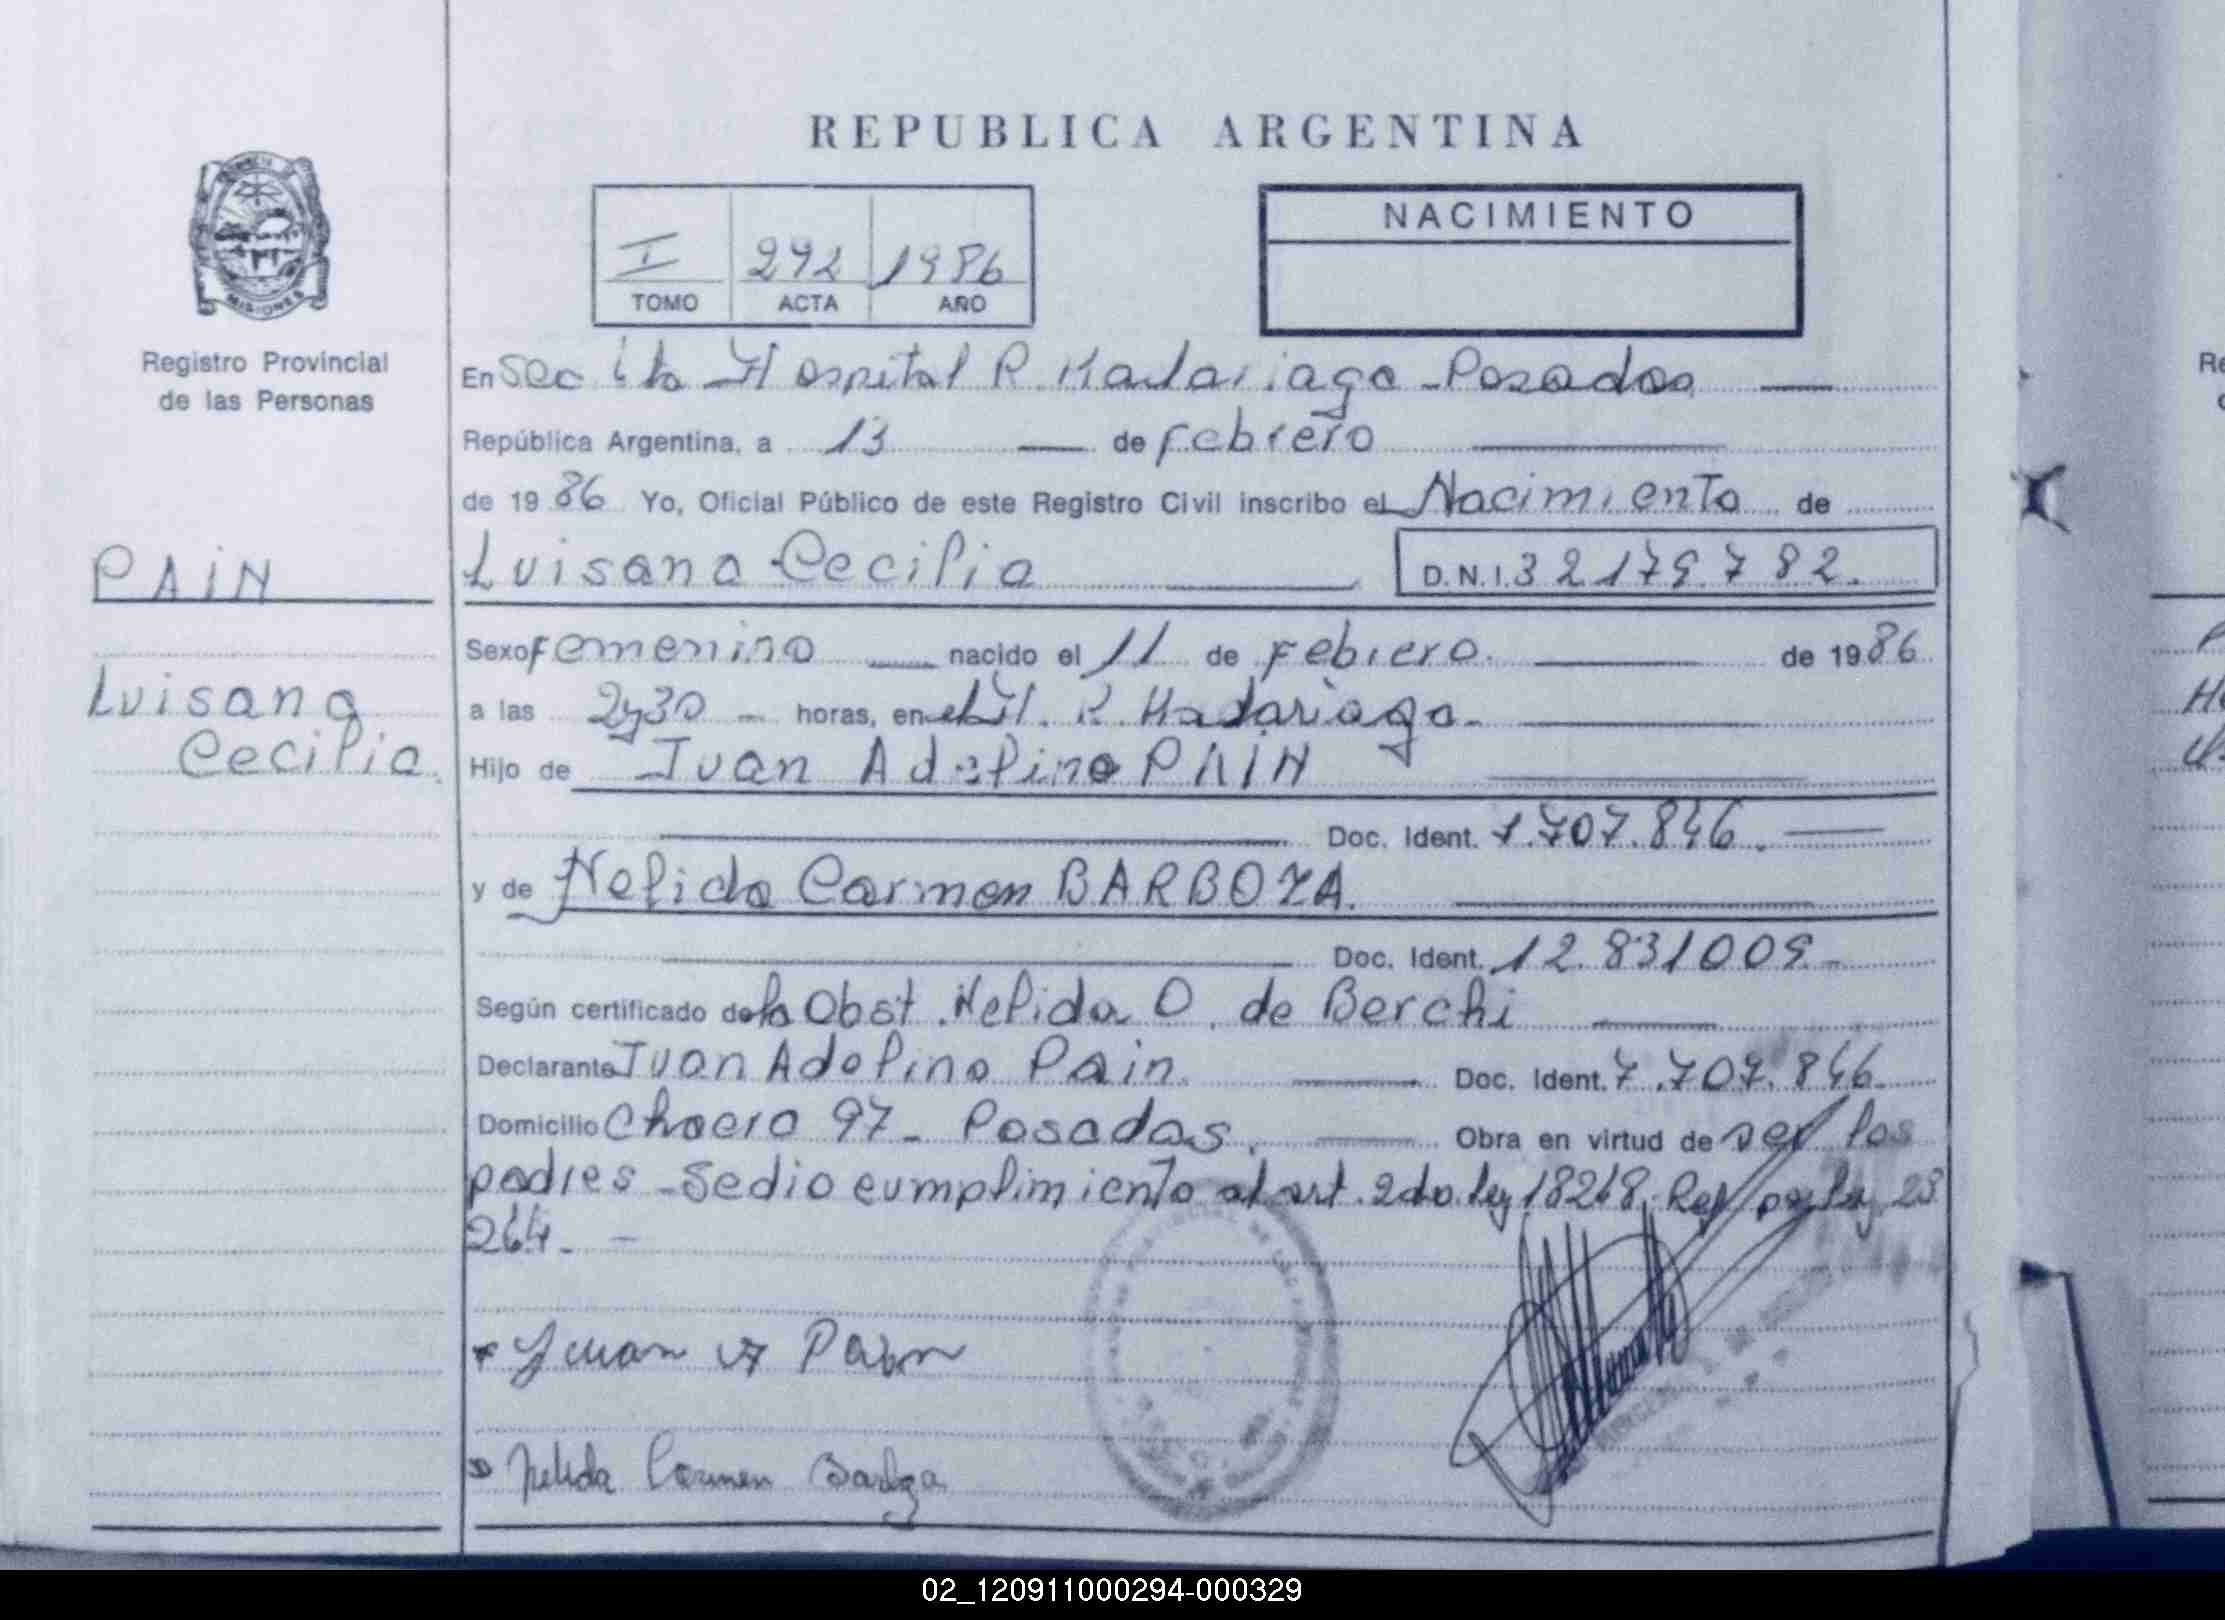 REPUBLICA ARGENTINA
NACIMIENTO
I 292 1986
TOMO ACTA AÑO
MISIONES
Registro Provincial
de las Personas
En Sec Hospital R. Madariaga - Posadas
República Argentina, a 13 de Febrero
de 19 86 Yo, Oficial Público de este Registro Civil inscribo el Nacimiento de
PAIN
Luisana Cecilia D.N.I. 32179.782.
Luisana
Cecilia.
Sexo Femenino nacido el 11 de Febrero. de 19 86
a las 2y30 horas, en el R. Madariaga.
Hijo de Juan Adolfino PAIN
Doc. Ident. 7.707.846.
y de Nelida Carmen BARBOZA.
Doc. Ident. 12.831009.
Según certificado de la Obst. Nelida O. de Berchi
Declarante Juan Adolfino Pain Doc. Ident. 7.707.846.
Domicilio 97 - Posadas. Obra en virtud de ser los
padres - Se dio cumplimiento al art. 2do. ley 18248. Ref por ley 23
264.
Juan A Pain
Nelida Carmen Barboza
02_120911000294-000329